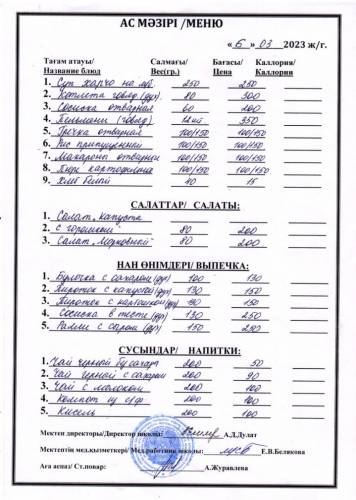 АС МӘЗІРІ /МЕНЮ
« 6 » 03 2023 ж/г.
Тағам атауы/ Салмағы/ Бағасы/ Каллория/
Название блюд Вес(гр.) Цена Каллории
1. Суп харчо на м/б 250 250
2. Котлета говяд. (дух) 80 300
3. Сосиска отварная 60 200
4. Пельмени (говяд) 12шт 350
5. Гречка отварная 100/150 100/150
6. Рис припущенный 100/150 100/150
7. Макароны отварные 100/150 100/150
8. Пюре картофельное 100/150 100/150
9. Хлеб белый 40 15
САЛАТТАР/ САЛАТЫ:
1. Салат „Капуста
2. с горошком" 80 200
3. Салат „Морковный" 80 200
НАН ӨНІМДЕРІ/ ВЫПЕЧКА:
1. Булочка с сахаром (дух) 100 130
2. Пирожок с капустой (дух) 130 150
3. Пирожок с картошкой (дух) 130 150
4. Сосиска в тесте (дух) 130 250
5. (дух) 150 250
СУСЫНДАР/ НАПИТКИ:
1. Чай черный без сахара 200 50
2. Чай черный с сахаром 200 90
3. Чай с молоком 200 100
4. Компот из с/ф 200 100
5. Кисель 200 100
Мектеп директоры/Директор школы: А.Д.Дулат
Мектептің мед.қызметкері/ Мед.работник школы: Е.В.Беликова
Аға аспаз/ Ст.повар: А.Журавлева